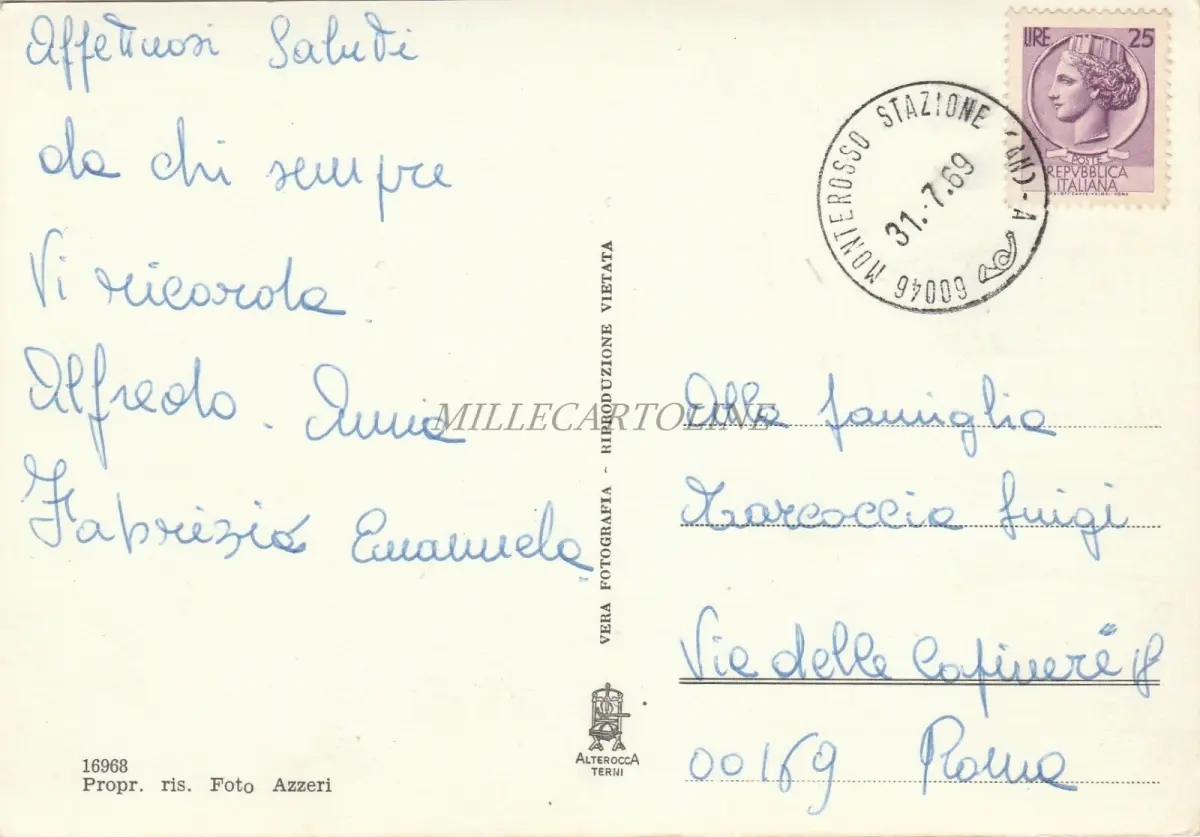 Affettuosi Saluti
da chi sempre
Vi ricorda
Alfredo. Anna
Fabrizio Emanuela
16968
Propr. ris. Foto Azzeri
VERA FOTOGRAFIA - RIPRODUZIONE VIETATA
ALTEROCCA
TERNI
MILLECARTOLINE
LIRE 25
POSTE
REPVBBLICA
ITALIANA
60046 MONTEROSSO STAZIONE (AN) - A
31.-7.69
Alla famiglia
Marcoccia Luigi
Via delle Capinere
00169 Roma